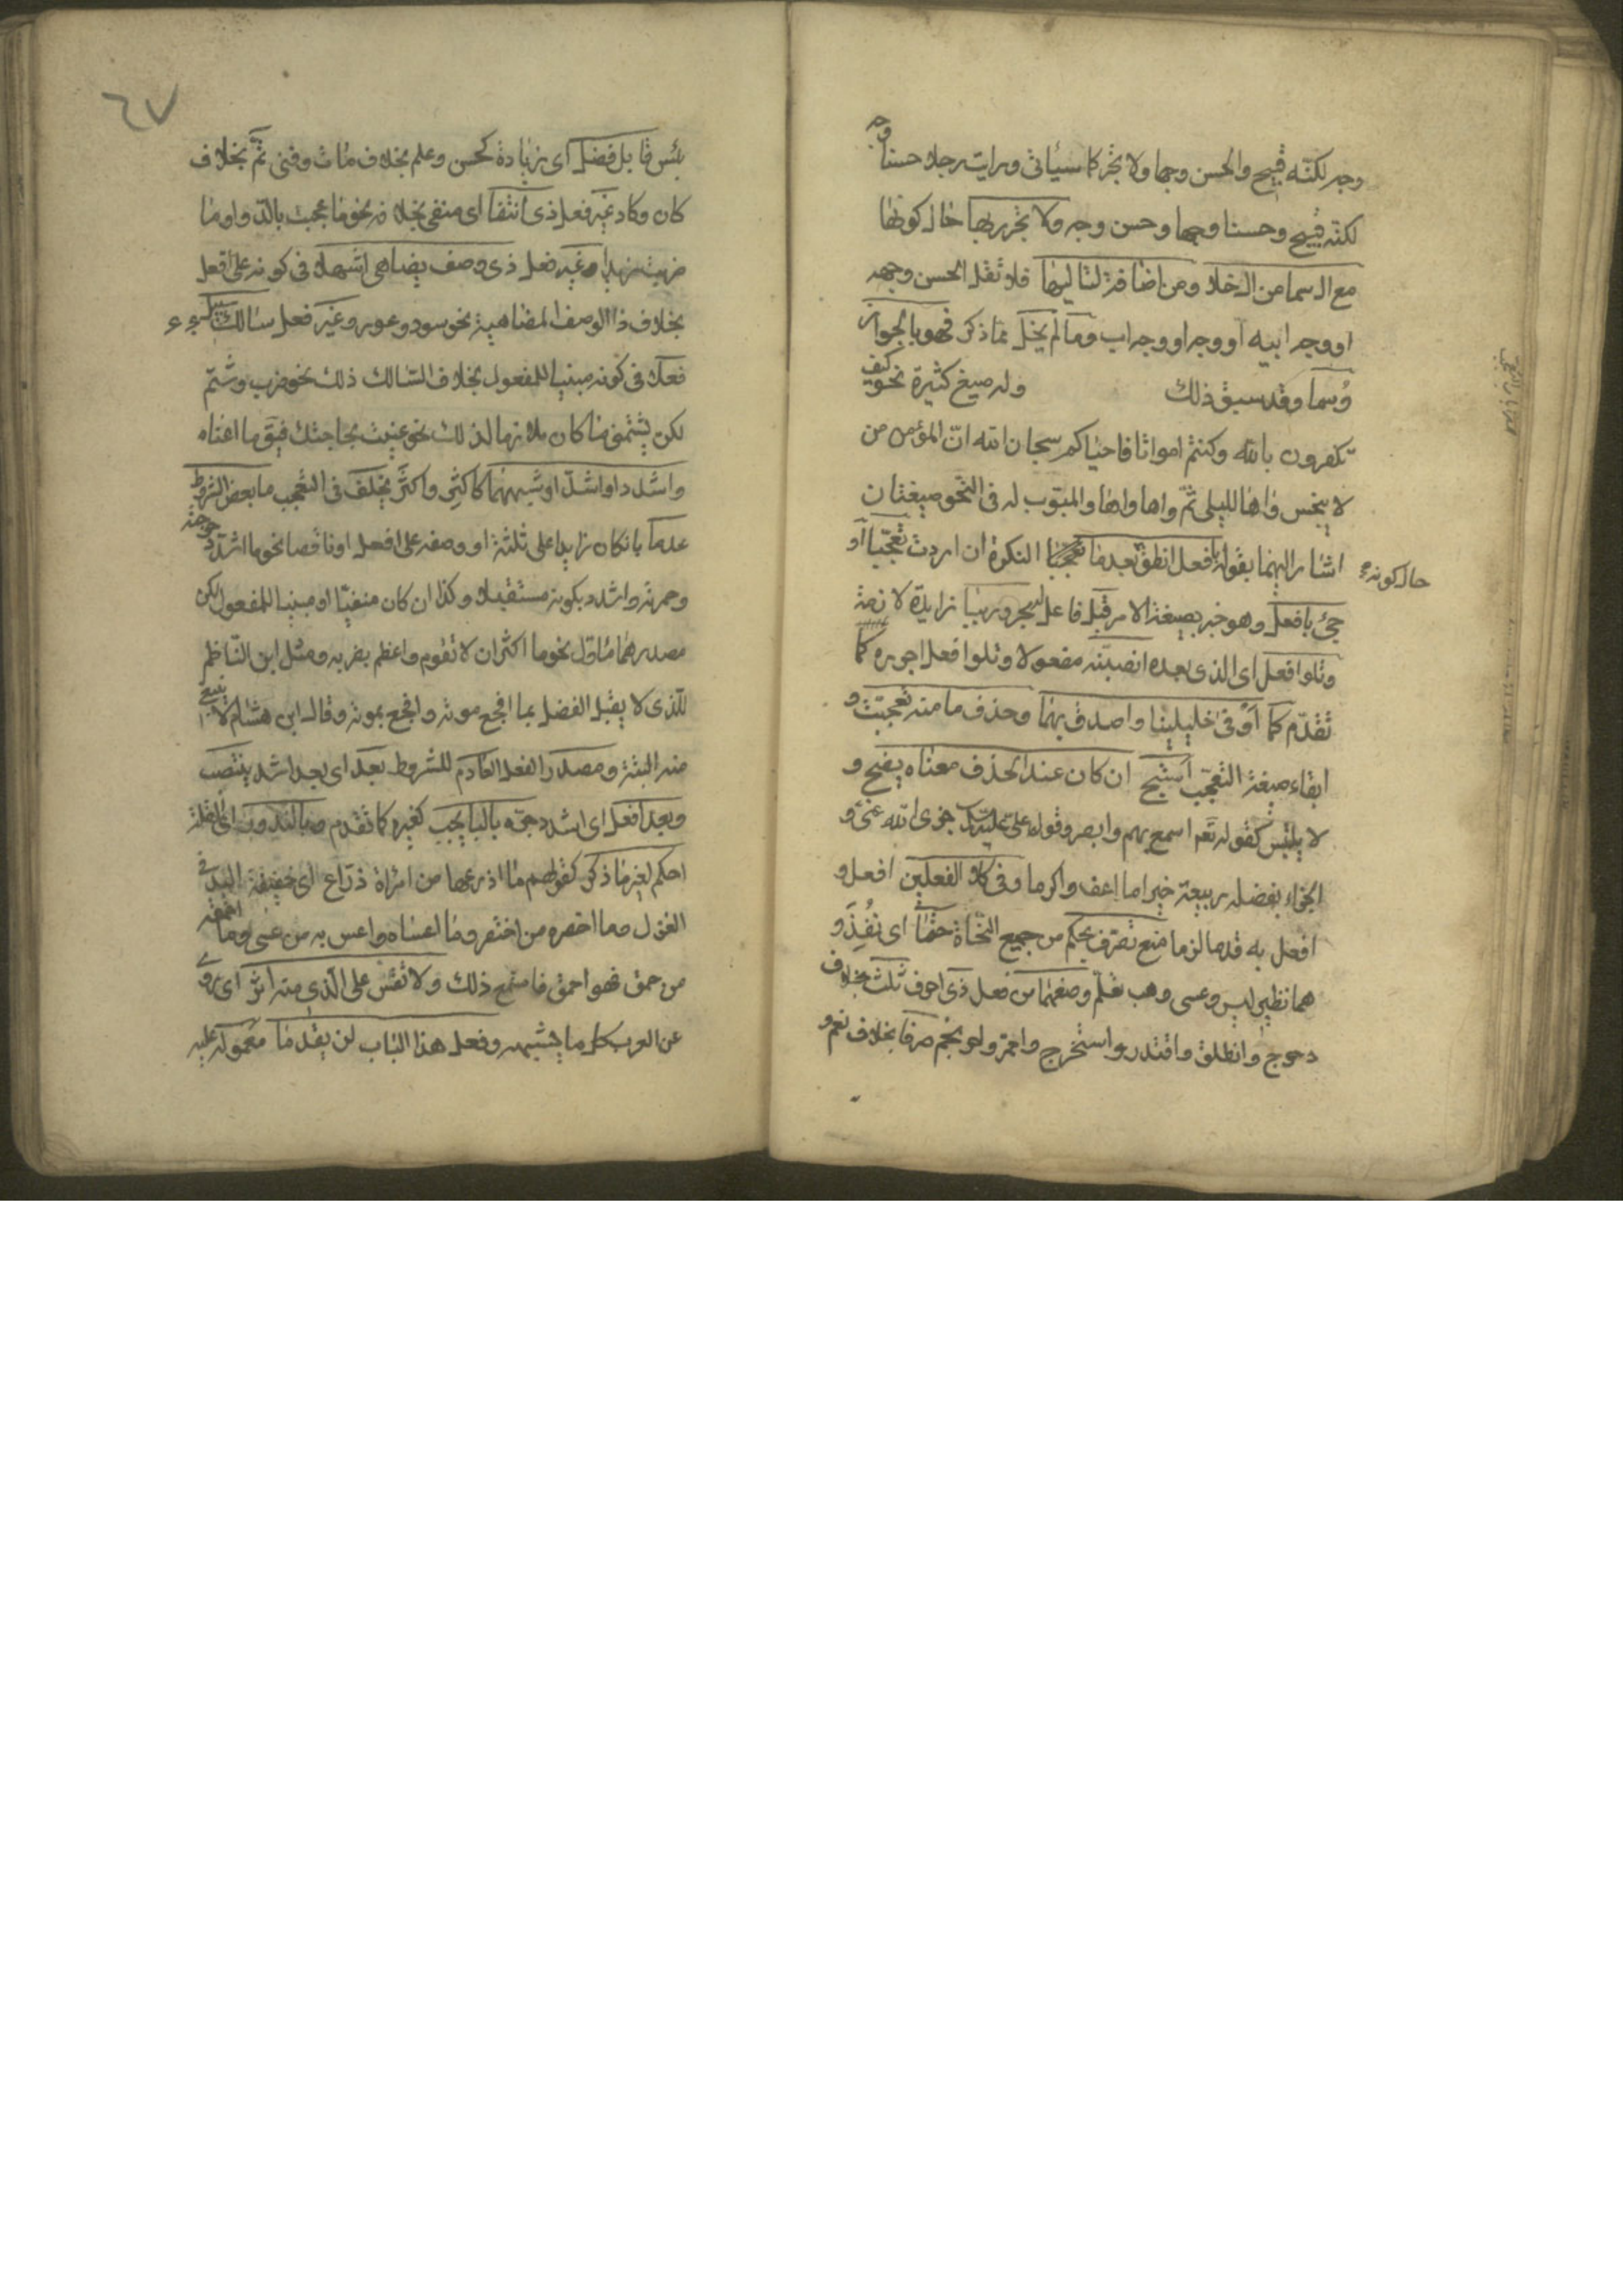 وجه لكنّه قبيح والحسن وجها ولا يجر كما سيأتى ورايت رجلا حسنا وجه
لكنه قبيح وحسنا وجها وحسن وجه ولا تجرر بها حال كونها
مع ال سما من ال خلا ومن اضافة لتاليها فلا تقل الحسن وجهه
او وجه ابيه او وجه او وجه اب وما لم يخل مما ذكر فهو بالجواز
وُسما وقد سبق ذلك وله صيغ كثيرة نحو كيف
تكفرون بالله وكنتم امواتا فاحياكم سبحان الله انّ المؤمن من
لا ينجس واها لليلى ثمّ واها واها والمبوّب له فى النحو صيغتان
اشار اليهما بقوله بافعل انطق بعد ما تعجبا النكرة ان اردت تعجّبا او
حال كونه
جئ بافعل وهو خبر بصيغة الامر قبل فاعل له مجرور ببا زايدة لازمة
وتلو افعل اى الذى بعده انصبنّه مفعولا وتلو افعل اجرره كما
تقدّم كما اوفى خليلينا واصدق بهما وحذف ما منه تعجبت و
ابقاء صيغة التعجّب استبح ان كان عند الحذف معناه يضح و
لا يلتبس كقوله تعم اسمع بهم وابصر وقول على جزى الله عنى و
الجزاء بفضله ربيعة خيرا ما اعف واكرما وفى كلا الفعلين افعل و
افعل به قدما لزما منع تصرّف بحكم من جميع النحاة حتما اى نُفِذَ و
هما نظير ليس وعسى وهب تعلم وصغهما من فعل ذى احرف ثلث بخلاف
دحرج وانطلق واقتدر واستخرج واحمرّ ولحو نجم صرفا بخلاف نعم و
٦٧
بئس قابل فضل اى زيادة كحسن وعلم بخلاف مات وفنى تمّ بخلاف
كان وكاد غير فعل ذى انتفا اى منفى بخلافه نحو ما عجت بالدواء وما
ضربت زيدا وغير فعل ذى وصف يضاهى اشهلا فى كونه على افعل
بخلاف ذا الوصف المضاهيه نحو سود وعور وغير فعل سالك سبيل
فعلا فى كونه مبنيا للمفعول بخلاف السالك ذلك نحو ضرب وشتم
لكن يستثنى ما كان ملازما لذلك نحو عنيت بحاجتك فيق ما اعناه
واشدد او اشدّ او شبههما كاكثر واكثر يخلف فى التعجب ما بعض الشروط
عدما بان كان زايدا على ثلثة او وصفه على افعل او ناقصا نحو ما اشدّ دحرجته
وحمرته واشدد بكونه مستقبلا وكذا ان كان منفيّا او مبنيا للمفعول لكن
مصدرهما مأوّل نحو ما اكثر ان لا تقوم واعظم بضربه ومثل ابن الناظم
للذى لا يقبل الفضل بما افجع موته وافجع بموته وقال ابن هشام لا
منه البتة ومصدر الفعل العادم للشروط بعد اى بعد اشد ينتصب
وبعد افعل اى اشدد جرّه بالبا يجب كغيره كما تقدم وبالندور اى القلة
احكم لغير ما ذكر كقولهم ما اذرعها من امراة ذراع اى خفيفة اليد فى
الغزل وما اخصره من اختصر وما اعساه واعس به من عسى وما احمقه
من حمق فهو احمق فاسمع ذلك ولا تقس على الذى منه اثر اى روى
عن العرب كل ما يشبهه وفعل هذا الباب لن يقدما معموله عليه